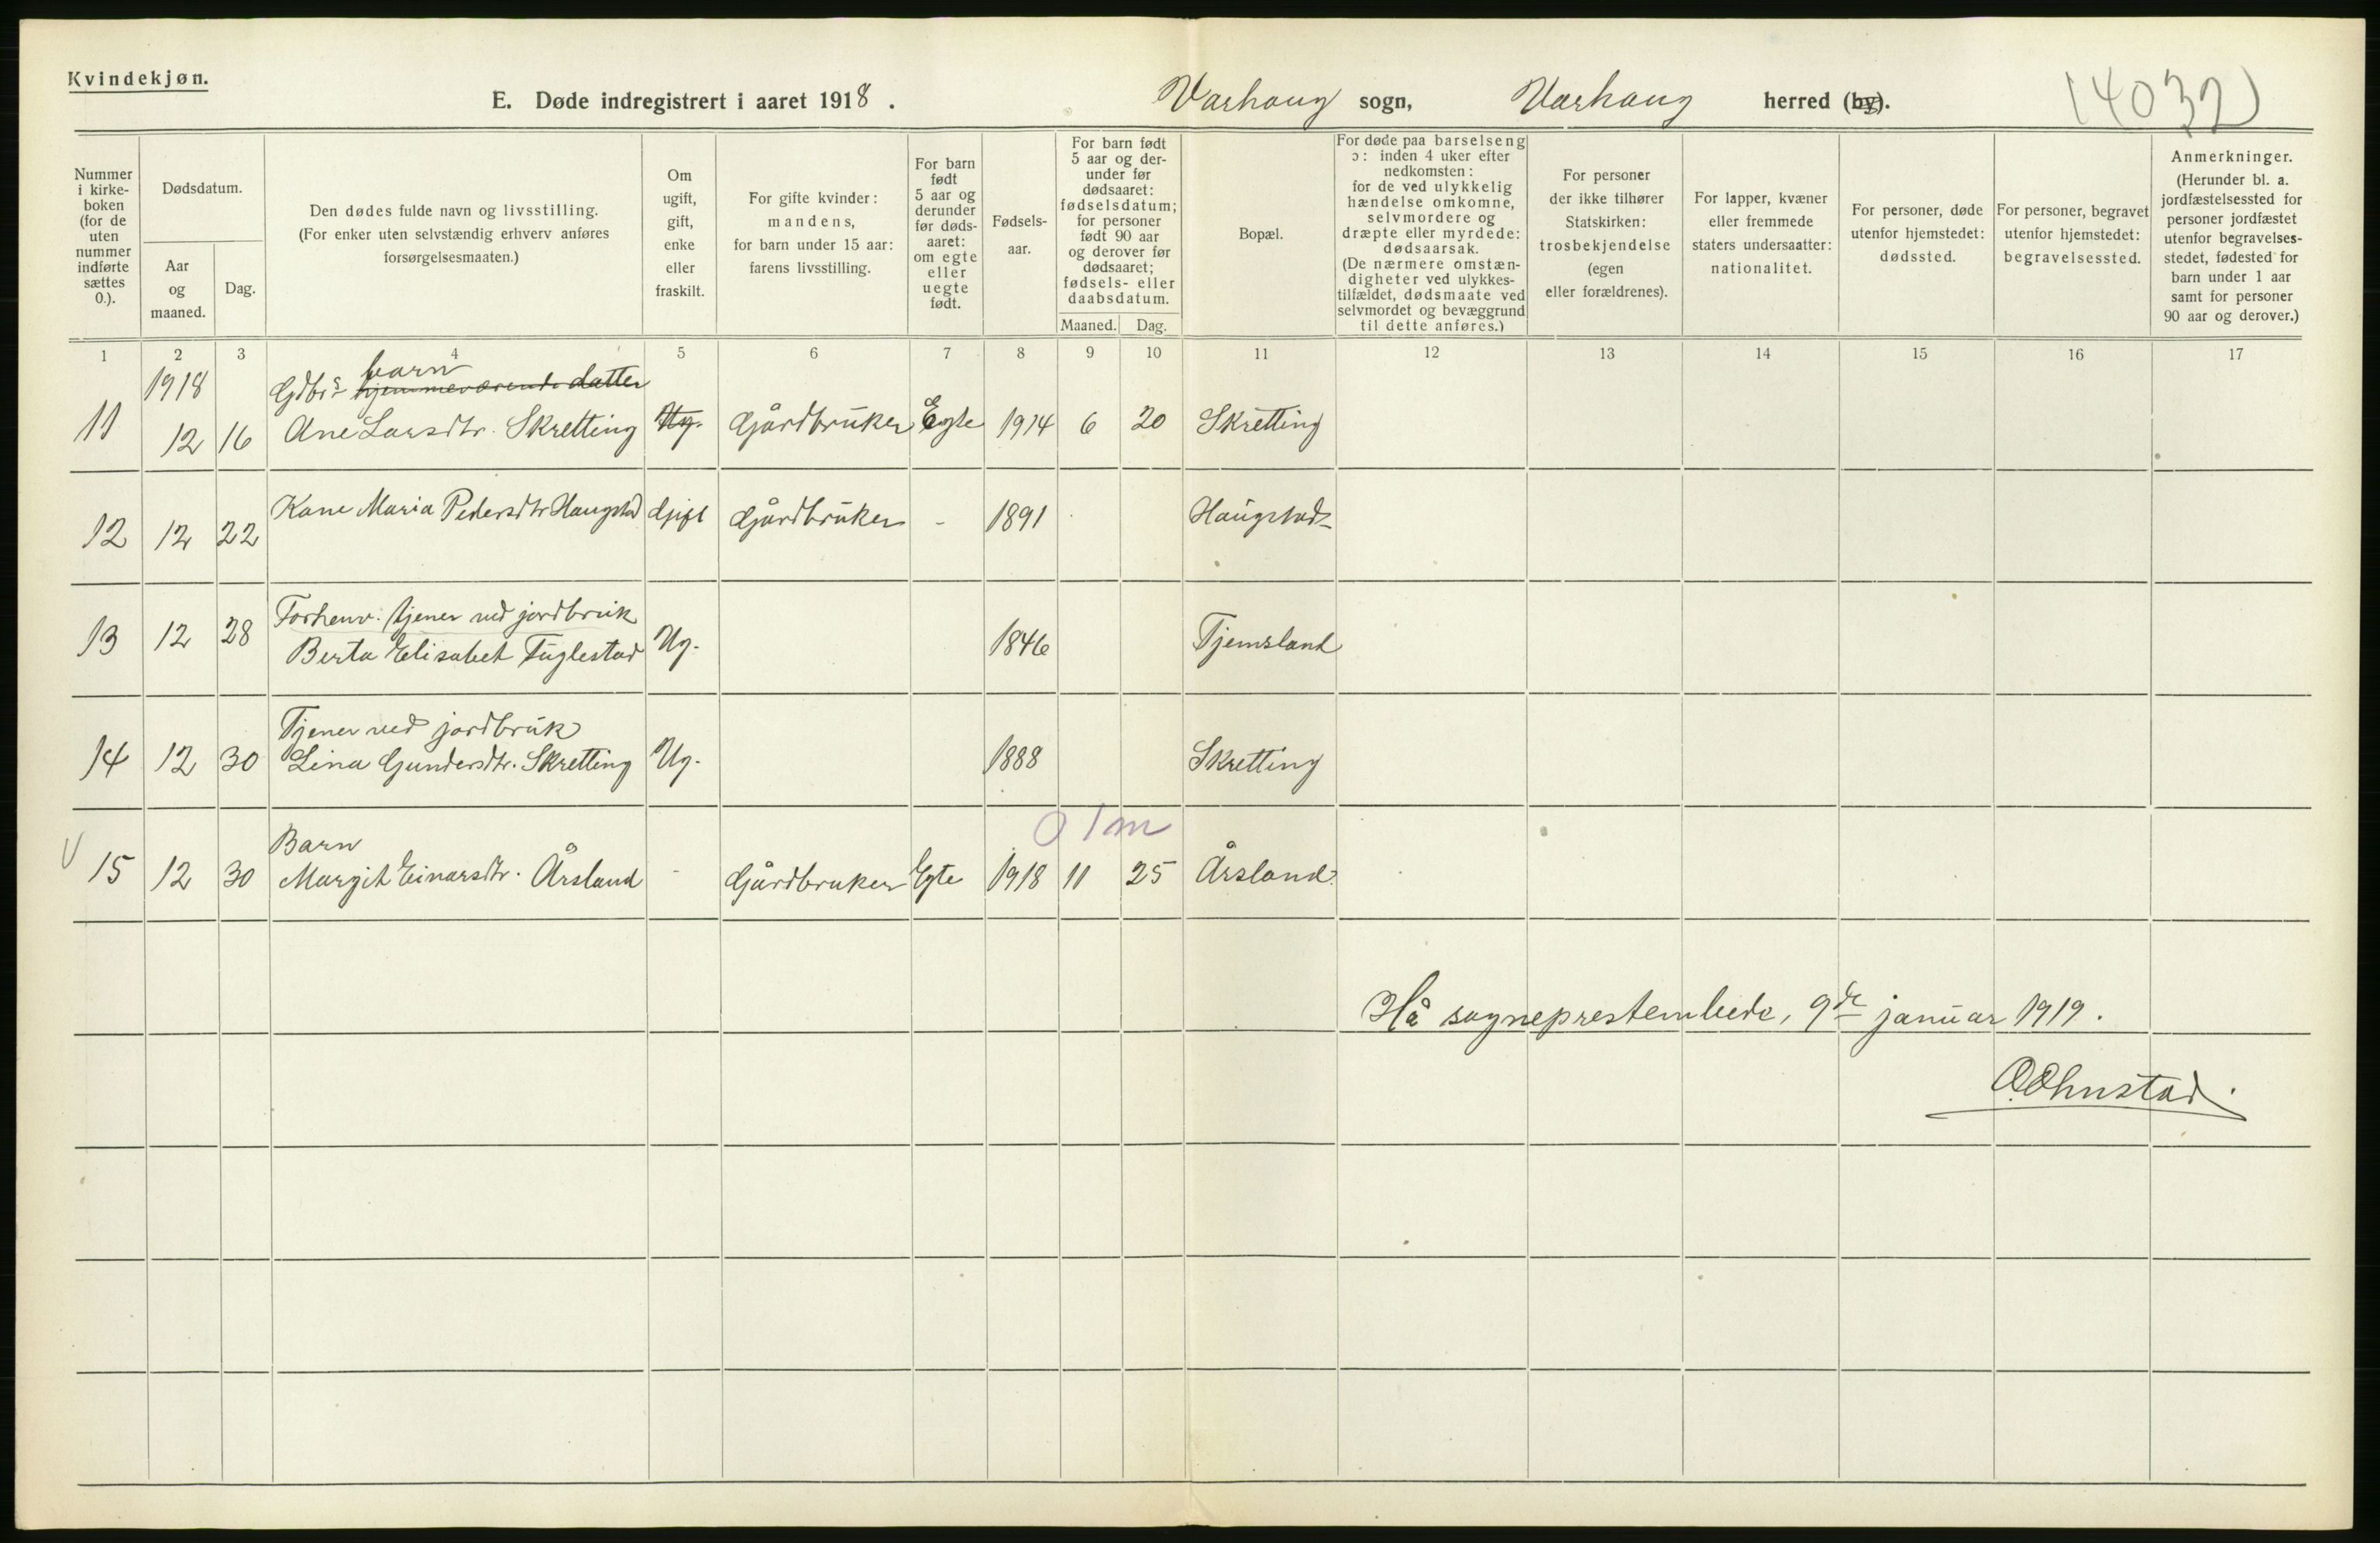 Kvindekjøn.
E. Døde indregistrert i aaret 1918. Varhaug sogn, Varhaug herred (by). (4032)
Nummer i kirkeboken (for de uten nummer indførte sættes 0.).
Dødsdatum.
Aar og maaned.
Dag.
Den dødes fulde navn og livsstilling.
(For enker uten selvstændig erhverv anføres
forsørgelsesmaaten.)
Om ugift, gift, enke eller fraskilt.
For gifte kvinder: mandens, for barn under 15 aar: farens livsstilling.
For barn født 5 aar og derunder før dødsaaret: om egte eller uegte født.
Fødselsaar.
For barn født 5 aar og derunder før dødsaaret: fødselsdatum; for personer født 90 aar og derover før dødsaaret; fødsels- eller daabsdatum.
Maaned. Dag.
Bopæl.
For døde paa barselseng ɔ: inden 4 uker efter nedkomsten: for de ved ulykkelig hændelse omkomne, selvmordere og dræpte eller myrdede: dødsaarsak. (De nærmere omstændigheter ved ulykkestilfældet, dødsmaate ved selvmordet og bevæggrund til dette anføres.)
For personer der ikke tilhører Statskirken: trosbekjendelse (egen eller forældrenes).
For lapper, kvæner eller fremmede staters undersaatter: nationalitet.
For personer, døde utenfor hjemstedet: dødssted.
For personer, begravet utenfor hjemstedet: begravelsessted.
Anmerkninger. (Herunder bl. a. jordfæstelsessted for personer jordfæstet utenfor begravelsesstedet, fødested for barn under 1 aar samt for personer 90 aar og derover.)
1 2 3 4 5 6 7 8 9 10 11 12 13 14 15 16 17
1918 Gdbrs barn hjemmeværende datter
11 12 16 Ane Larsdtr. Skretting Ug. Gårdbruker Egte 1914 6 20 Skretting
12 12 22 Kone Maria Pedersdtr Haugstad Gift Gårdbruker - 1891 Haugstad
13 12 28 Forhenv. tjener ved jordbruk
Berta Elisabet Fuglestad Ug. 1846 Tjemsland
Tjener ved jordbruk
14 12 30 Lina Gundersdtr. Skretting Ug. 1888 Skretting
0 1 m
Barn
V 15 12 30 Margit Einarsdtr. Årsland - Gårdbruker Egte 1918 11 25 Årsland
Hå sogneprestembede, 9de januar 1919.
O. Ohnstad.